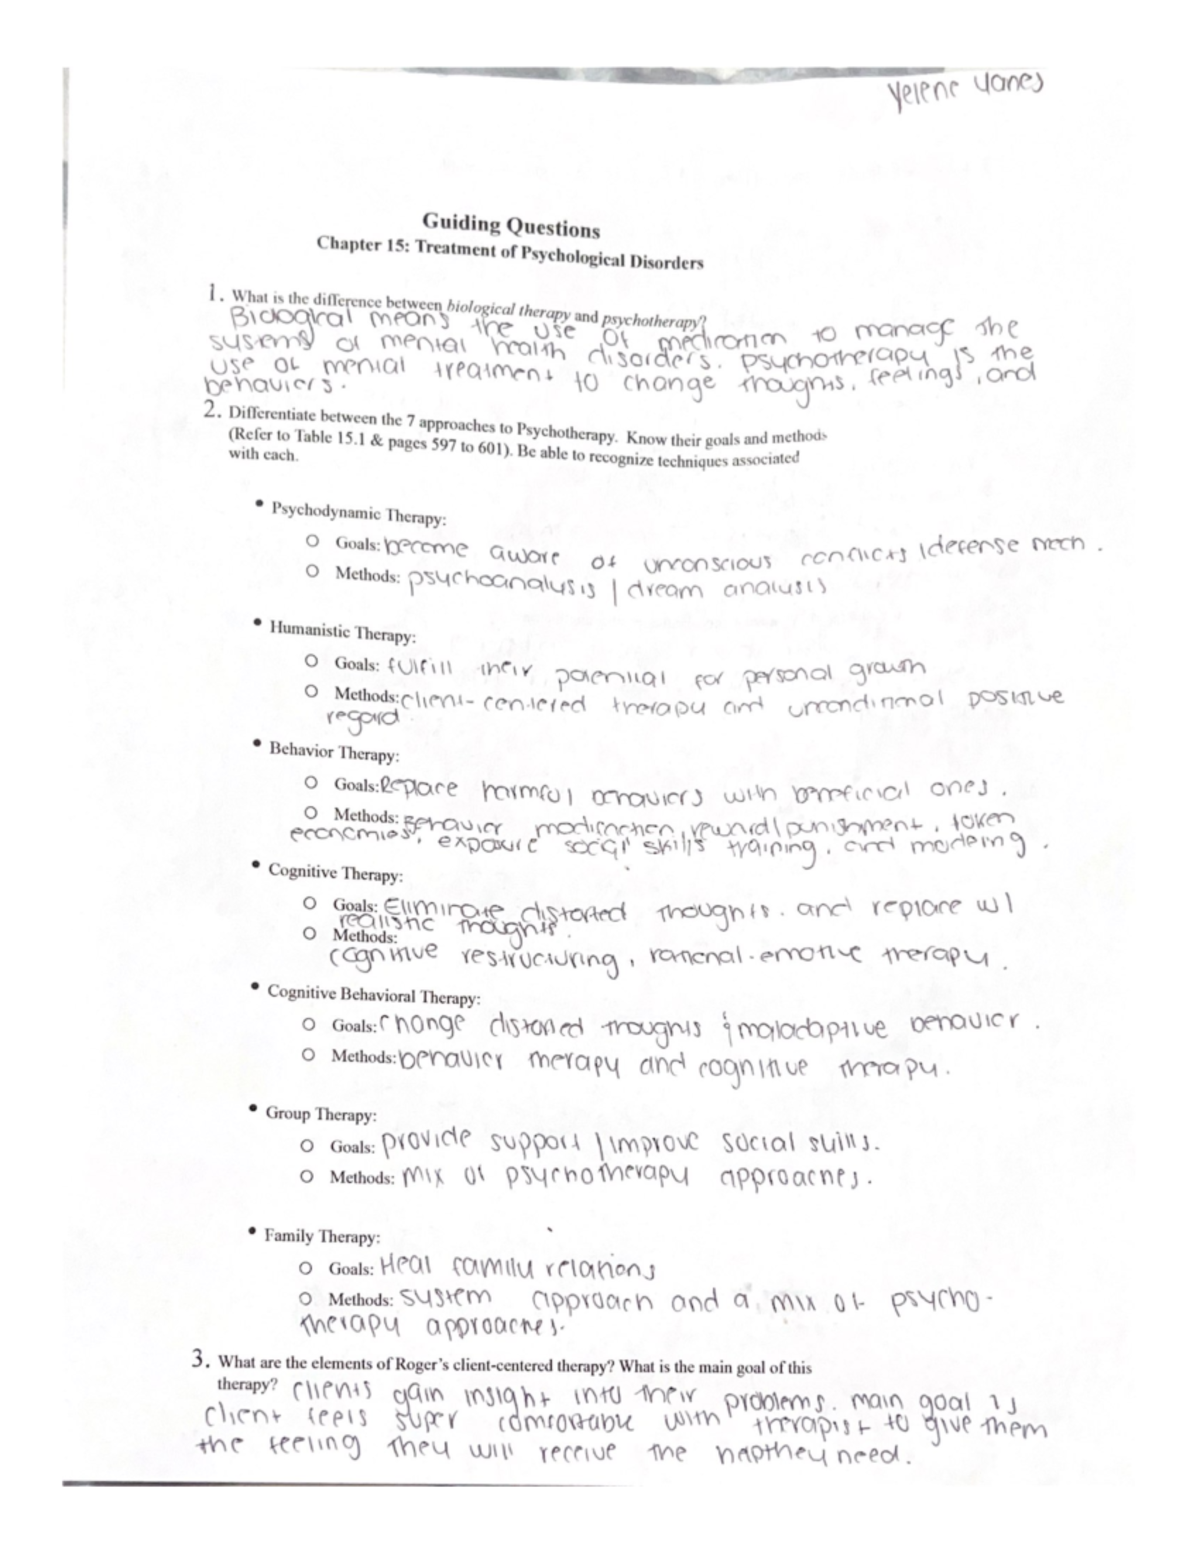 Yelene Yanes
Guiding Questions
Chapter 15: Treatment of Psychological Disorders
1. What is the difference between biological therapy and psychotherapy?
Biological means the use of medication to manage the
systems of mental health disorders. psychotherapy is the
use of menial treatment to change thoughts, feelings, and
behaviors.
2. Differentiate between the 7 approaches to Psychotherapy. Know their goals and methods
(Refer to Table 15.1 & pages 597 to 601). Be able to recognize techniques associated
with each.
• Psychodynamic Therapy:
○ Goals: become aware of unconscious conflicts / defense mech.
○ Methods: psychoanalysis / dream analysis
• Humanistic Therapy:
○ Goals: fulfill their potential for personal growth
○ Methods: client-centered therapy and unconditional positive
regard
• Behavior Therapy:
○ Goals: Replace harmful behaviors with beneficial ones.
○ Methods: Behavior modification, reward/punishment, token
economies, exposure social skills training, and modeling.
• Cognitive Therapy:
○ Goals: Eliminate distorted thoughts. and replace w/
realistic thoughts.
○ Methods:
cognitive restructuring, rational-emotive therapy.
• Cognitive Behavioral Therapy:
○ Goals: change distorted thoughts & maladaptive behavior.
○ Methods: behavior therapy and cognitive therapy.
• Group Therapy:
○ Goals: provide support / improve social skills.
○ Methods: mix of psychotherapy approaches.
• Family Therapy:
○ Goals: Heal family relations
○ Methods: system approach and a mix of psycho-
therapy approaches.
3. What are the elements of Roger's client-centered therapy? What is the main goal of this
therapy? clients gain insight into their problems. main goal is
client feels super comfortable with therapist to give them
the feeling they will receive the they need.